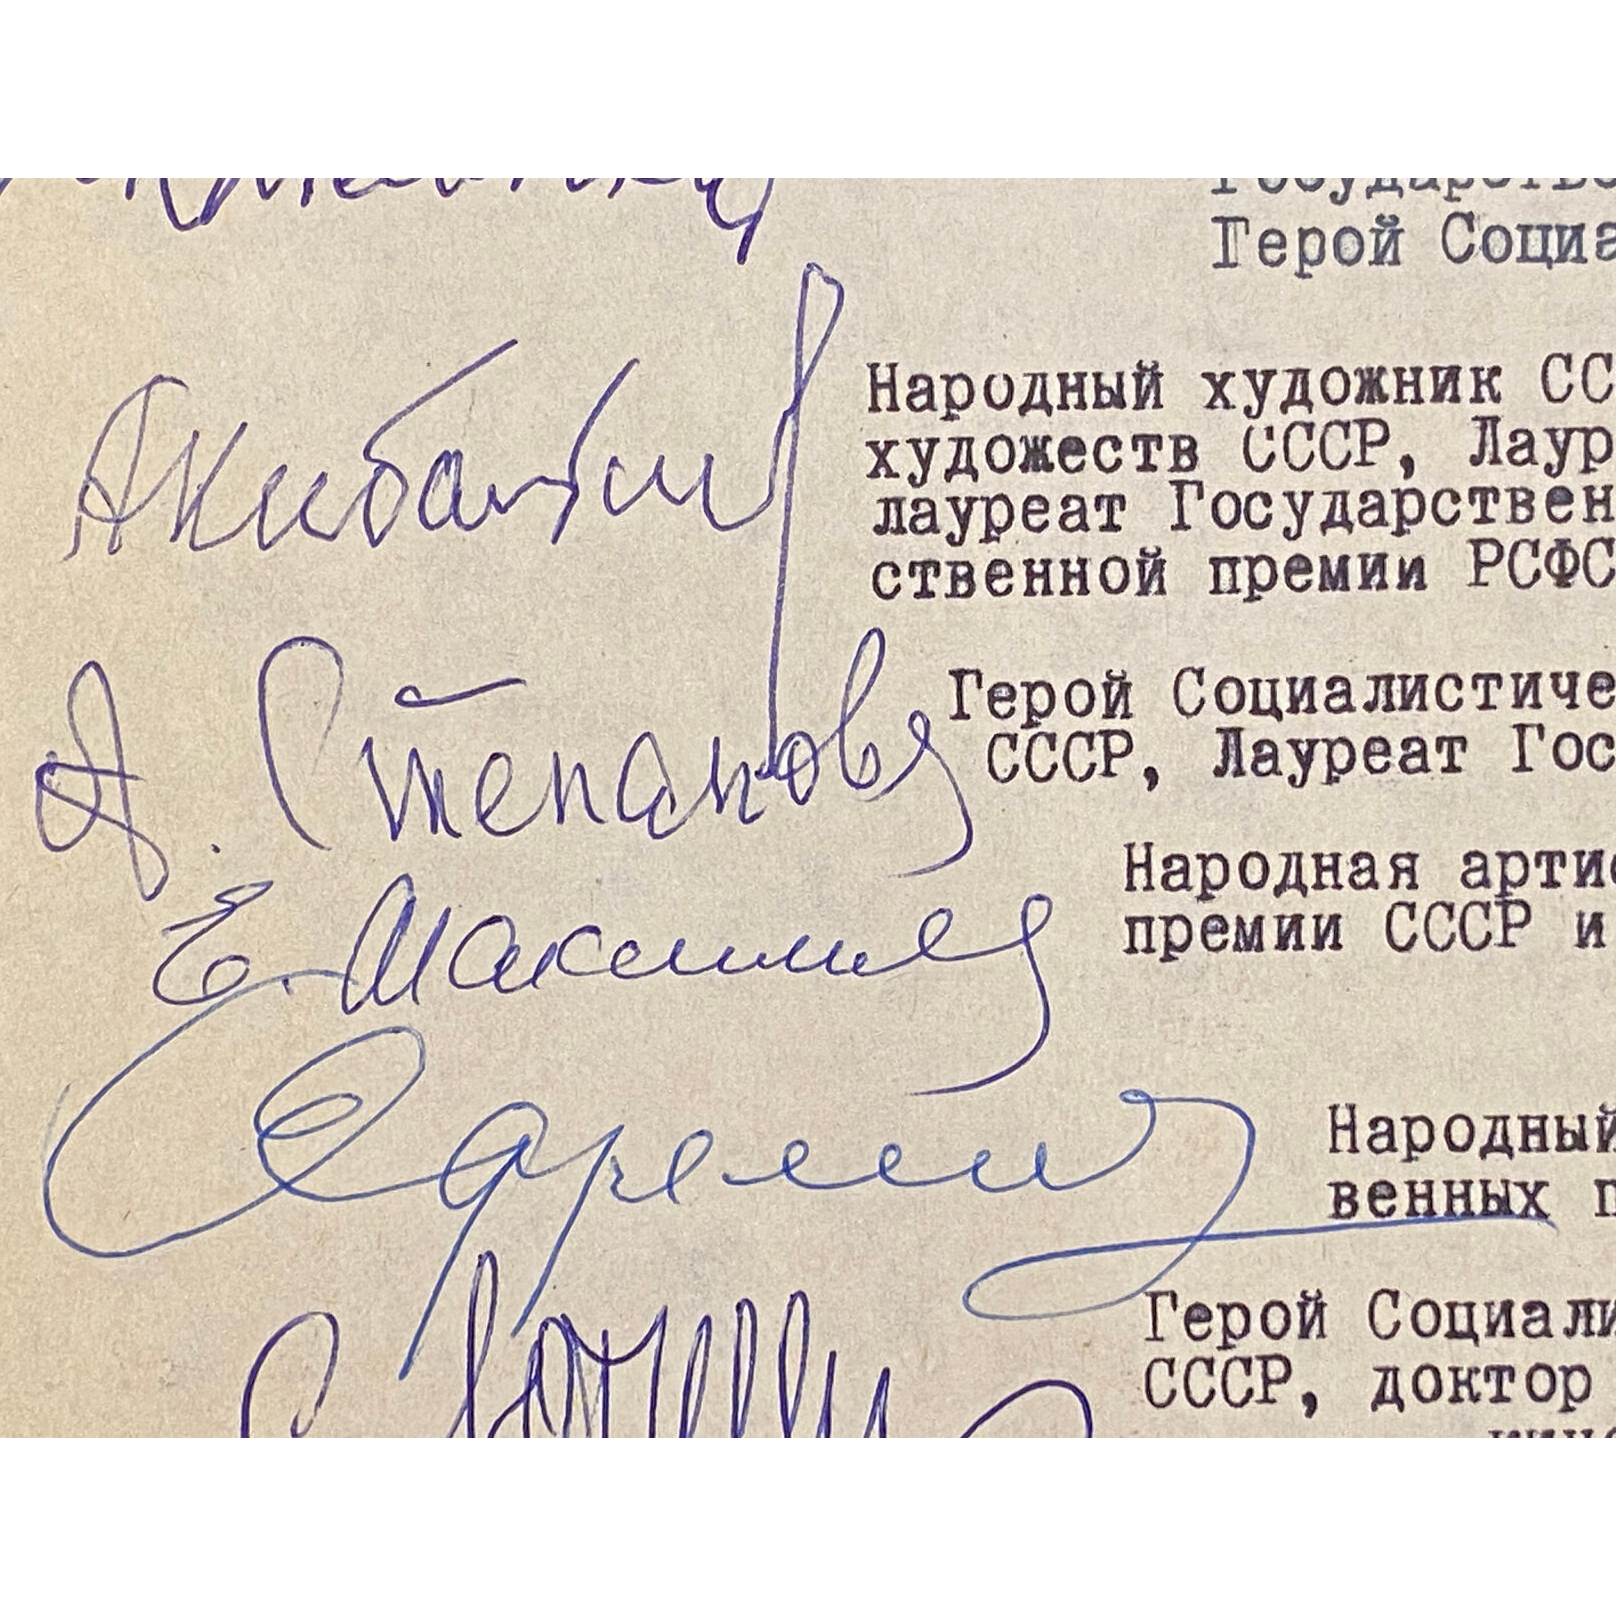 Герой Социа
Народный художник СС
художеств СССР, Лаур
лауреат Государствен
ственной премии РСФС
А. Степанова
Герой Социалистиче
СССР, Лауреат Гос
Е. Максимова
Народная арти
премии СССР и
Народный
венных п
Герой Социали
СССР, доктор